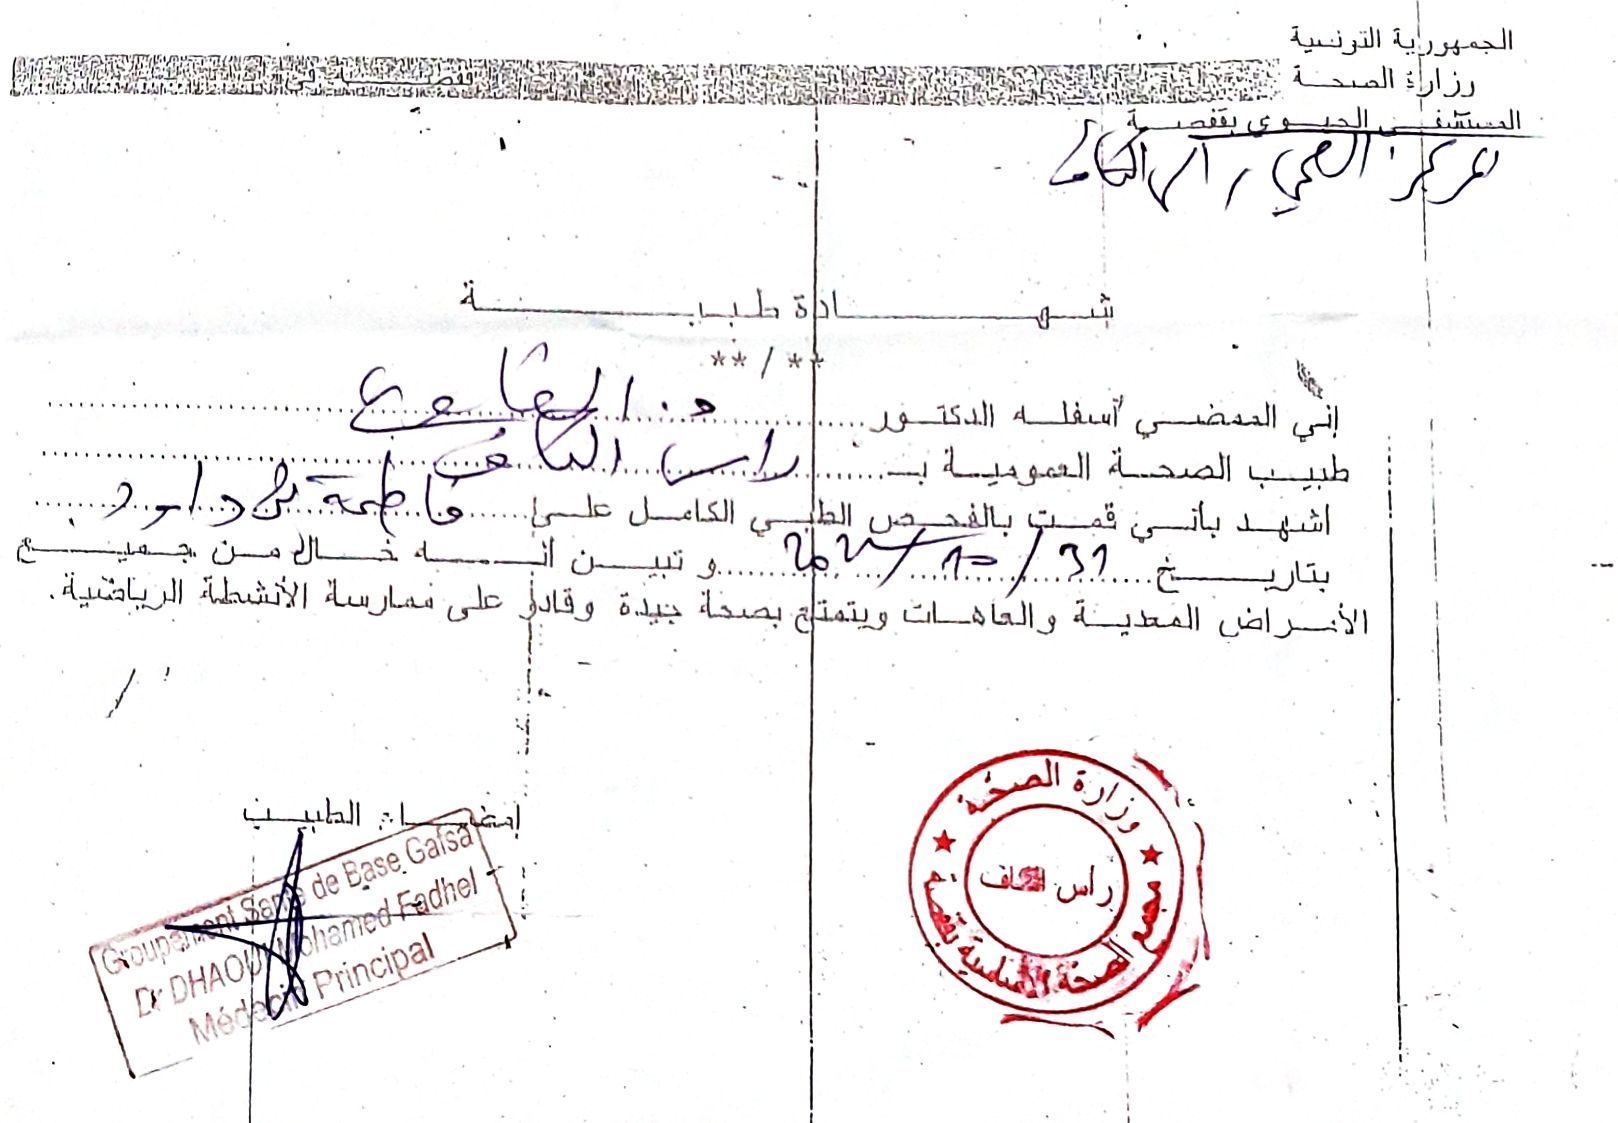 الجمهورية التونسية
وزارة الصحة
المستشفى الجهوي بقفصة
مركز الصحي راس الكاف
شهادة طبية
** / **
إني الممضي أسفله الدكتور
طبيب الصحة العمومية بـ راس الكاف
اشهد بأني قمت بالفحص الطبي الكامل على فاطمة بن داود
بتاريخ 31/10/ و تبين انه خال من جميع
الأمراض المعدية والعاهات ويتمتع بصحة جيدة وقادر على ممارسة الأنشطة الرياضية.
إمضاء الطبيب
Groupement Sante de Base Gafsa
Dr DHAOUI Mohamed Fadhel
Médecin Principal
وزارة الصحة
راس الكاف
مجمع الصحة الأساسية بقفصة